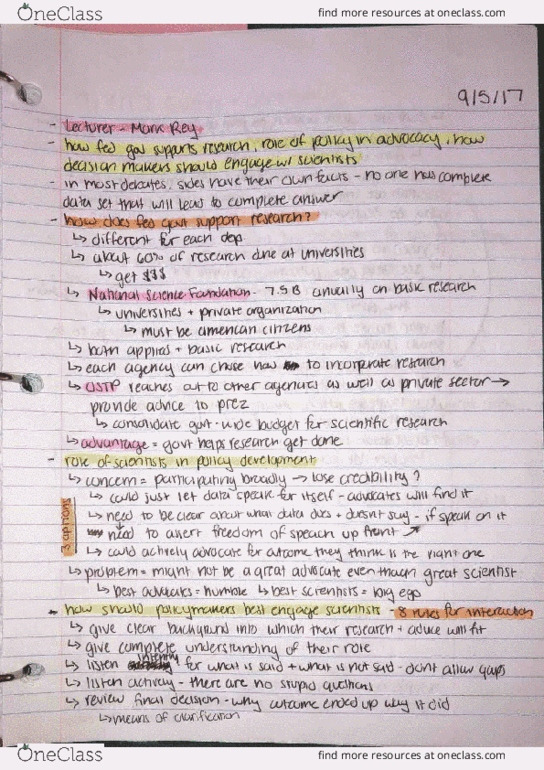 OneClass
find more resources at oneclass.com
9/5/17
- Lecturer - Mark Rey
- how fed gov supports research, role of policy in advocacy, how
decision makers should engage w/ scientists
- in most debates, sides have their own facts - no one has complete
data set that will lead to complete answer
- how does fed govt support research?
↳ different for each dep
↳ about 60% of research done at universities
↳ get $$$
↳ National Science Foundation - 7.5 B annually on basic research
↳ universities + private organization
↳ must be american citizens
↳ both applied + basic research
↳ each agency can chose how to incorporate research
↳ OSTP reaches out to other agencies as well as private sector →
provide advice to prez
↳ consolidate govt-wide budget for scientific research
↳ advantage = govt helps research get done
- role of scientists in policy development
↳ concern = participating broadly → lose credibility?
3 options
↳ could just let data speak for itself - advocates will find it
↳ need to be clear about what data does + doesn't say - if speak on it
need to assert freedom of speach up front
↳ could actively advocate for outcome they think is the right one
↳ problem = might not be a great advocate even though great scientist
↳ best advocates = humble ↳ best scientists = long ego
- how should policymakers best engage scientists - 8 rules for interaction
↳ give clear background into which their research + advice will fit
↳ give complete understanding of their role
↳ listen intently for what is said + what is not said - dont allow gaps
↳ listen actively - there are no stupid questions
↳ review final decision - why outcome ended up why it did
↳ means of clarification
OneClass
find more resources at oneclass.com